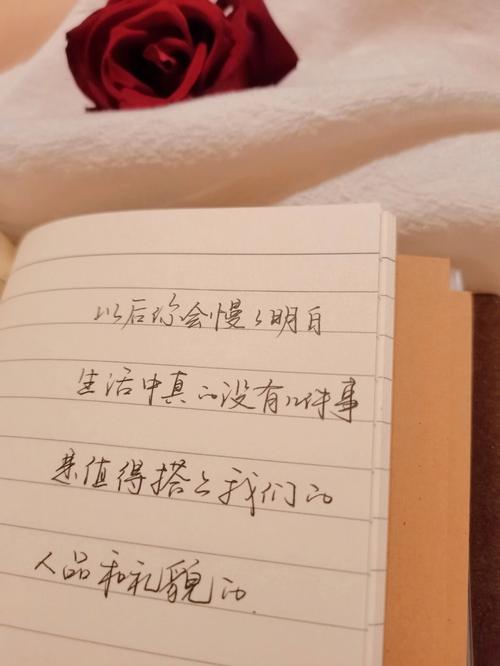 以后你会慢々明白
生活中真的没有几件事
是值得搭上我们的
人品和礼貌的.